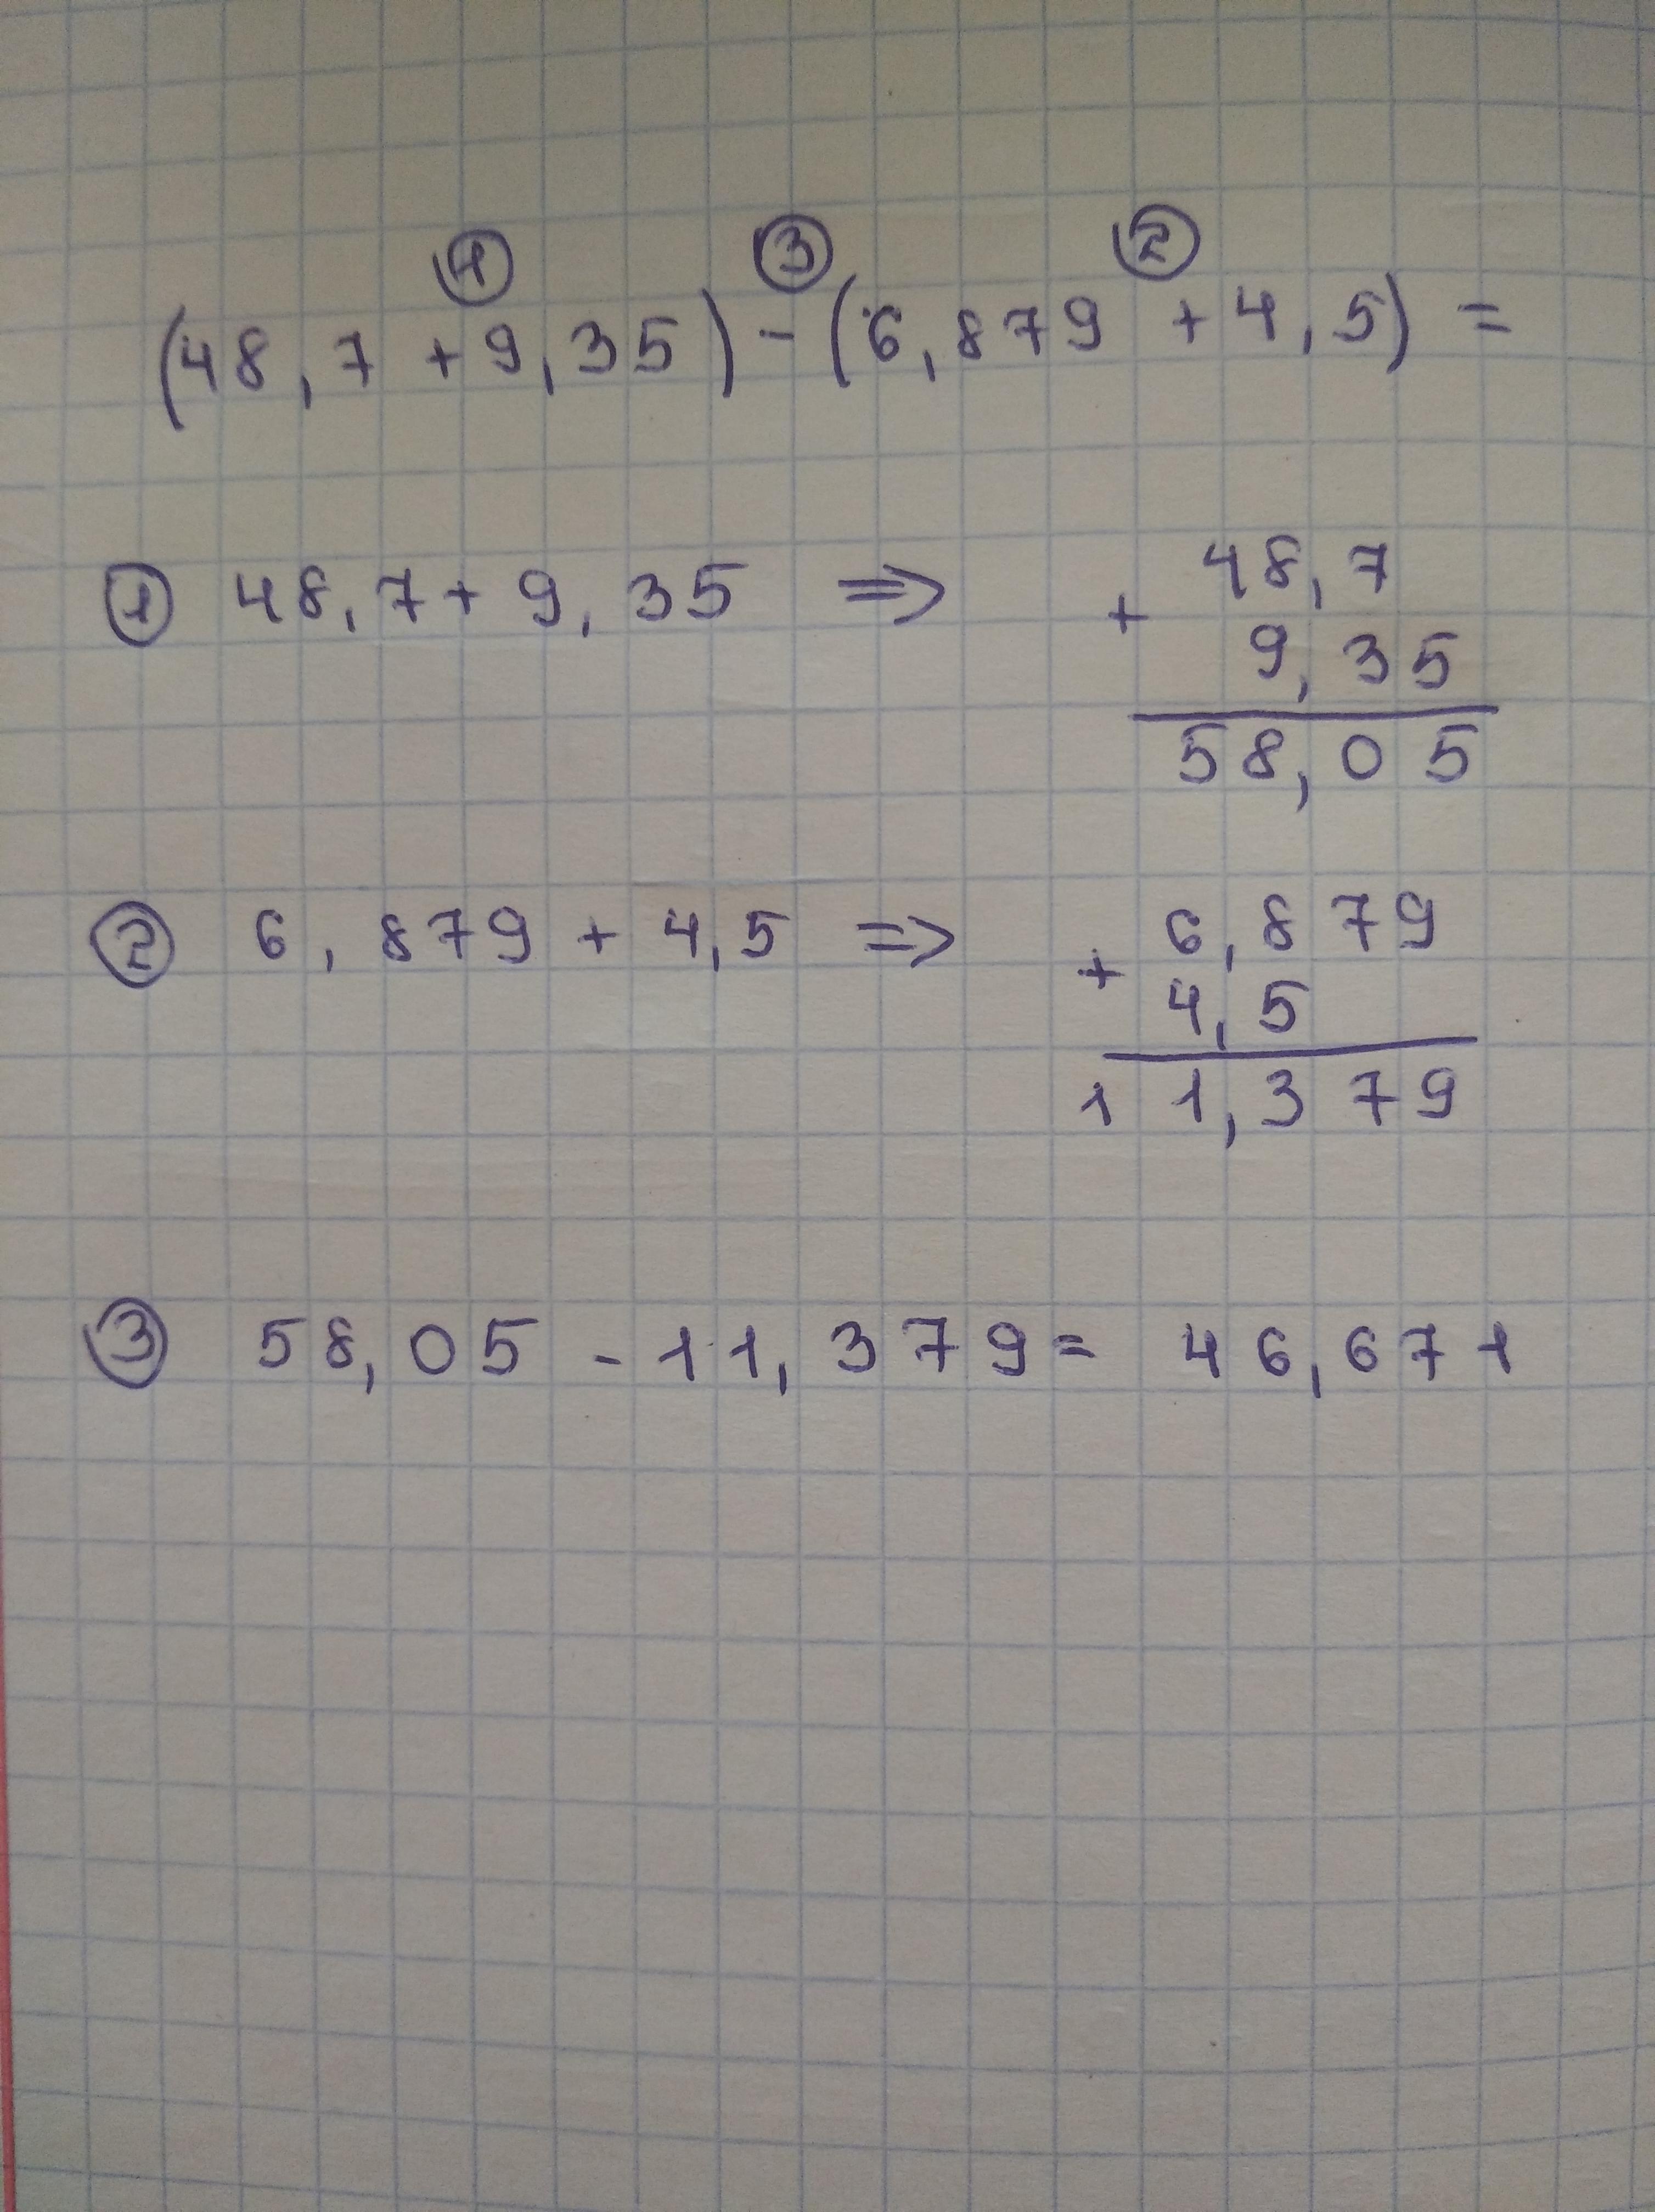 ① ③ ②
(48,7 + 9,35) - (6,879 + 4,5) =
① 48,7 + 9,35 ⇒
48,7
+
9,35
58,05
② 6,879 + 4,5 ⇒
6,879
+
4,5
11,379
③ 58,05 - 11,379 = 46,671